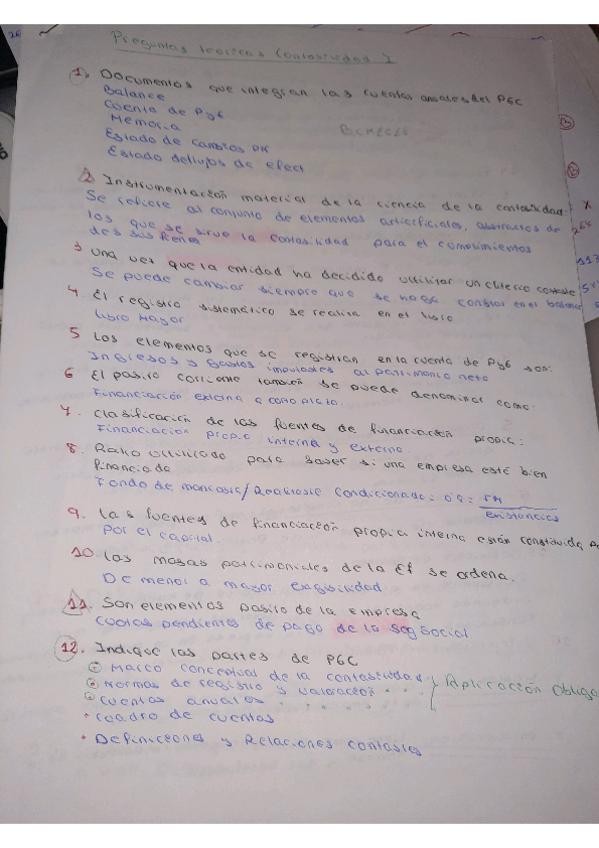 Preguntas teoricas Contabilidad I
1. Documentos que integran las cuentas anuales del PGC
Balance
Cuenta de PyG
Memoria
Estado de cambios PN
Estado de flujos de efect
2 Instrumentación material de la ciencia de la contabilidad:
Se refiere al conjunto de elementos artierficiales, abstractos de
los que se sirve la contabilidad para el cumplimientos
des sus fienes
3 una vez que la entidad ha decidido utilitar un criterio contable
Se puede cambiar siempre que se haga constar en el balance
4. El registro sistemático se realiza en el libro
libro Mayor
5 Los elementos que se registran en la cuenta de PyG son:
Ingresos y gastos imputables al patrimonio neto
6 El pasivo corriente también se puede denominar como:
Financiación externa a corto plazo.
7. Clasificación de las fuentes de financiación propia:
Financiación propia interna y externa.
8. Ratio utilizado para saber si una empresa esté bien
financiada
Fondo de maniobra/
existencias
9. Las fuentes de financiación propia interna están constituida
por el capital.
10. Las masas patrimoniales de la EF se ordena.
De menor a mayor exigibilidad
11. Son elementos pasivo de la empresa
cuotas pendientes de pago de la Seg Social
12. Indique las partes de PGC
Marco conceptual de la contabilidad
Normas de registro y valoración
Cuentas anuales
Aplicación Obliga
• Cuadro de cuentas
• Definiciones y Relaciones contables